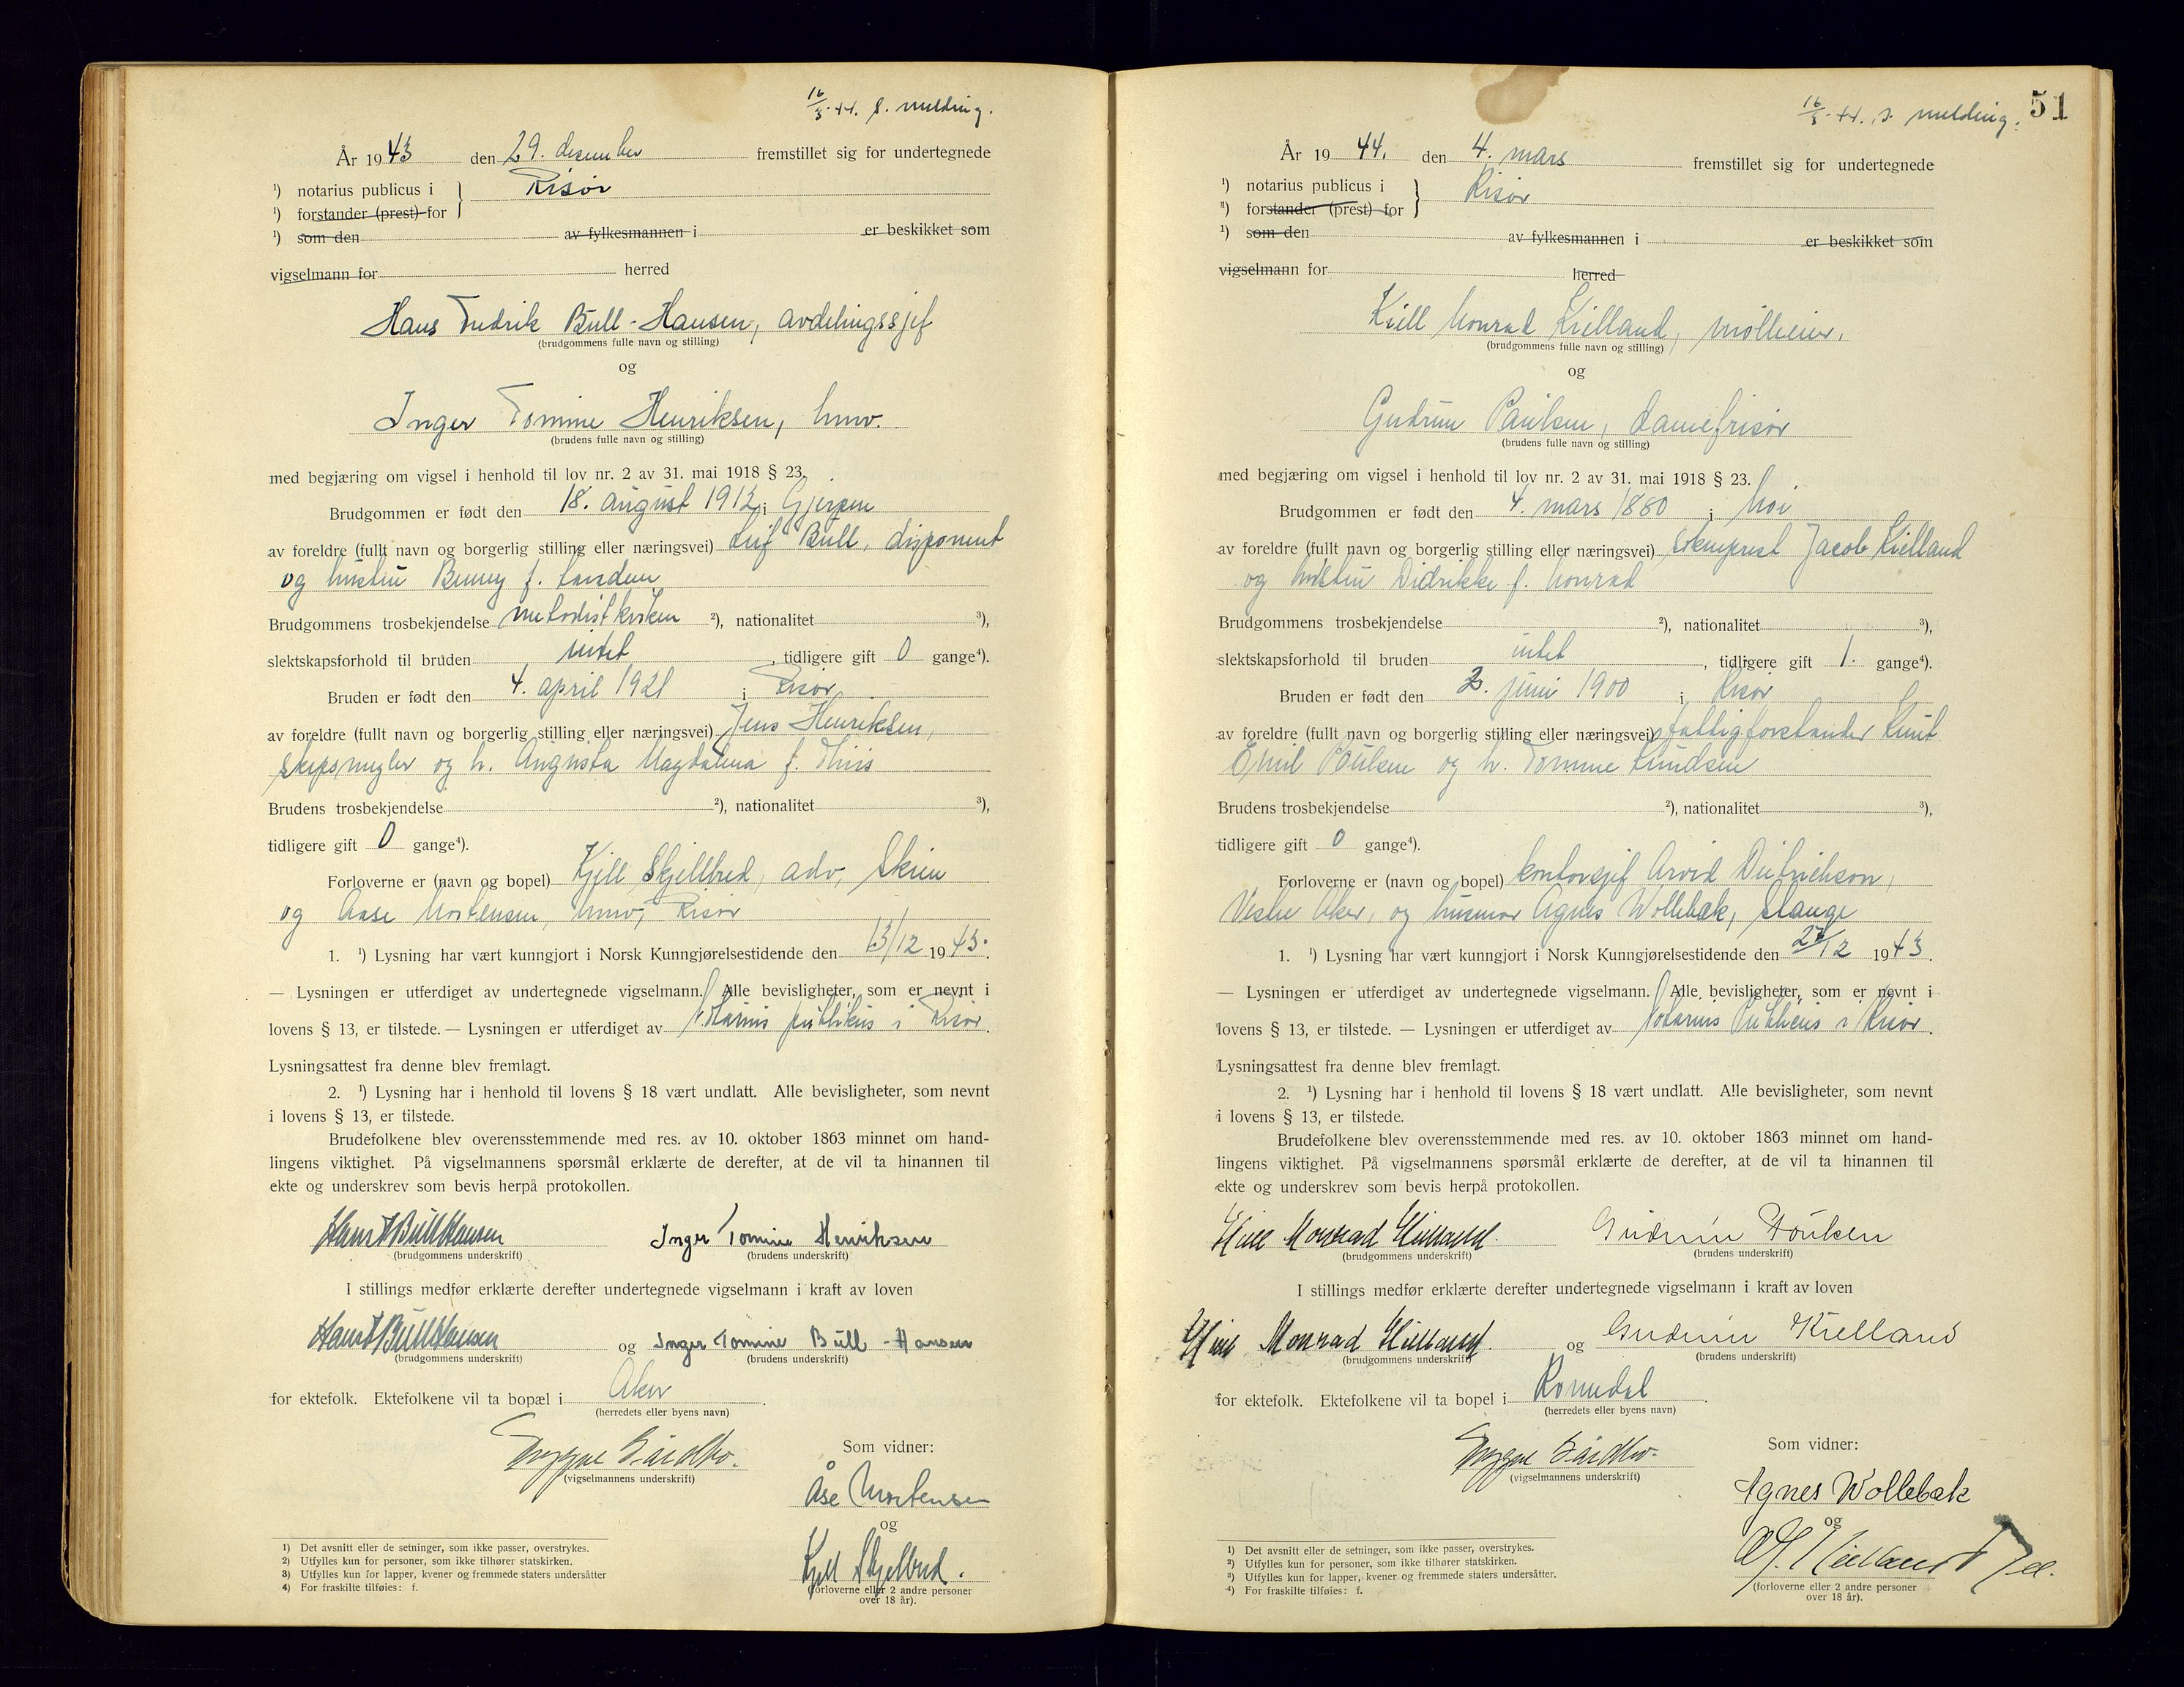 16/3 44. s. melding.
År 1943 den 29. desember fremstillet sig for undertegnede
¹) notarius publicus i } Risør
¹) forstander (prest) for
¹) som den av fylkesmannen i er beskikket som
vigselmann for herred
Hans Fredrik Bull-Hansen, avdelingssjef
(brudgommens fulle navn og stilling)
og
Inger Tomine Henriksen, hmv.
(brudens fulle navn og stilling)
med begjæring om vigsel i henhold til lov nr. 2 av 31. mai 1918 § 23.
Brudgommen er født den 18. august 1912 i Gjerpen
av foreldre (fullt navn og borgerlig stilling eller næringsvei) Leif Bull, disponent
og hustru Benny f.
Brudgommens trosbekjendelse metodistkirken ²), nationalitet ³),
slektskapsforhold til bruden intet, tidligere gift 0 gange⁴).
Bruden er født den 4. april 1921 i Risør
av foreldre (fullt navn og borgerlig stilling eller næringsvei) Jens Henriksen,
skipsmegler og h. Augusta Magdalena f. Thiis
Brudens trosbekjendelse ²), nationalitet ³),
tidligere gift 0 gange⁴).
Forloverne er (navn og bopel) Kjell Skjelbred, adv, Skien
og Aase Mortensen, hmv, Risør
1. ¹) Lysning har vært kunngjort i Norsk Kunngjørelsestidende den 13/12 1943.
— Lysningen er utferdiget av undertegnede vigselmann. Alle bevisligheter, som er nevnt i
lovens § 13, er tilstede. — Lysningen er utferdiget av Notarius publikus i Risør.
Lysningsattest fra denne blev fremlagt.
2. ¹) Lysning har i henhold til lovens § 18 vært undlatt. Alle bevisligheter, som nevnt
i lovens § 13, er tilstede.
Brudefolkene blev overensstemmende med res. av 10. oktober 1863 minnet om hand-
lingens viktighet. På vigselmannens spørsmål erklærte de derefter, at de vil ta hinannen til
ekte og underskrev som bevis herpå protokollen.
Hans F Bull Hansen Inger Tomine Henriksen
(brudgommens underskrift) (brudens underskrift)
I stillings medfør erklærte derefter undertegnede vigselmann i kraft av loven
Hans F Bull Hansen og Inger Tomine Bull-Hansen
(brudgommens underskrift) (brudens underskrift)
for ektefolk. Ektefolkene vil ta bopæl i Aker.
(herredets eller byens navn)
(vigselmannens underskrift)
Som vidner:
Åse Mortensen
og
Kjell Skjelbred.
(forloverne eller 2 andre personer
over 18 år).
1) Det avsnitt eller de setninger, som ikke passer, overstrykes.
2) Utfylles kun for personer, som ikke tilhører statskirken.
3) Utfylles kun for lapper, kvener og fremmede staters undersåtter
4) For fraskilte tilføies: f.
16/3 44. s. melding. 51
År 1944. den 4. mars fremstillet sig for undertegnede
¹) notarius publicus i } Risør
¹) forstander (prest) for
¹) som den av fylkesmannen i er beskikket som
vigselmann for herred
Kiell Monrad Kielland, mølleeier.
(brudgommens fulle navn og stilling)
og
Gudrun Paulsen, damefrisør
(brudens fulle navn og stilling)
med begjæring om vigsel i henhold til lov nr. 2 av 31. mai 1918 § 23.
Brudgommen er født den 4. mars 1880 i Moi
av foreldre (fullt navn og borgerlig stilling eller næringsvei) sokneprest Jacob Kielland
og hustru Didrikke f. Monrad
Brudgommens trosbekjendelse ²), nationalitet ³),
slektskapsforhold til bruden intet, tidligere gift 1. gange⁴).
Bruden er født den 2. juni 1900 i Risør
av foreldre (fullt navn og borgerlig stilling eller næringsvei) fattigforstander Knut
Emil Paulsen og h. Tomine Knudsen
Brudens trosbekjendelse ²), nationalitet ³),
tidligere gift 0 gange⁴).
Forloverne er (navn og bopel) kontorsjef Arvid Dietrichson,
Vestre Aker, og husmor Agnes Wollebæk, Stange
1. ¹) Lysning har vært kunngjort i Norsk Kunngjørelsestidende den 27/12 1943.
— Lysningen er utferdiget av undertegnede vigselmann. Alle bevisligheter, som er nevnt i
lovens § 13, er tilstede. — Lysningen er utferdiget av Notarius Publicus i Risør.
Lysningsattest fra denne blev fremlagt.
2. ¹) Lysning har i henhold til lovens § 18 vært undlatt. Alle bevisligheter, som nevnt
i lovens § 13, er tilstede.
Brudefolkene blev overensstemmende med res. av 10. oktober 1863 minnet om hand-
lingens viktighet. På vigselmannens spørsmål erklærte de derefter, at de vil ta hinannen til
ekte og underskrev som bevis herpå protokollen.
Kiell Monrad Kielland. Gudrun Poulsen
(brudgommens underskrift) (brudens underskrift)
I stillings medfør erklærte derefter undertegnede vigselmann i kraft av loven
Kiell Monrad Kielland. og Gudrun Kielland
(brudgommens underskrift) (brudens underskrift)
for ektefolk. Ektefolkene vil ta bopel i Romedal.
(herredets eller byens navn)
(vigselmannens underskrift)
Som vidner:
Agnes Wollebæk
og
Kielland
(forloverne eller 2 andre personer
over 18 år).
1) Det avsnitt eller de setninger, som ikke passer, overstrykes.
2) Utfylles kun for personer, som ikke tilhører statskirken.
3) Utfylles kun for lapper, kvener og fremmede staters undersåtter.
4) For fraskilte tilføies: f.